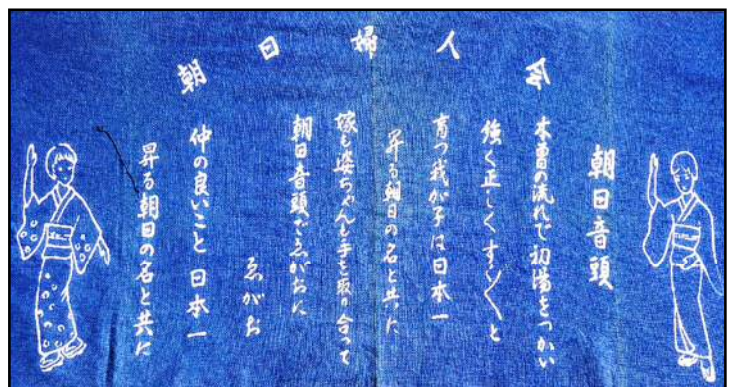 朝日婦人会
朝日音頭
木曽の流れで初湯をつかい
強く正しくすく〱と
育つ我が子は日本一
昇る朝日の名と共に
嫁も婆ちゃんも手を取り合って
朝日音頭でゑがおに
ゑがお
仲の良いこと 日本一
昇る朝日の名と共に